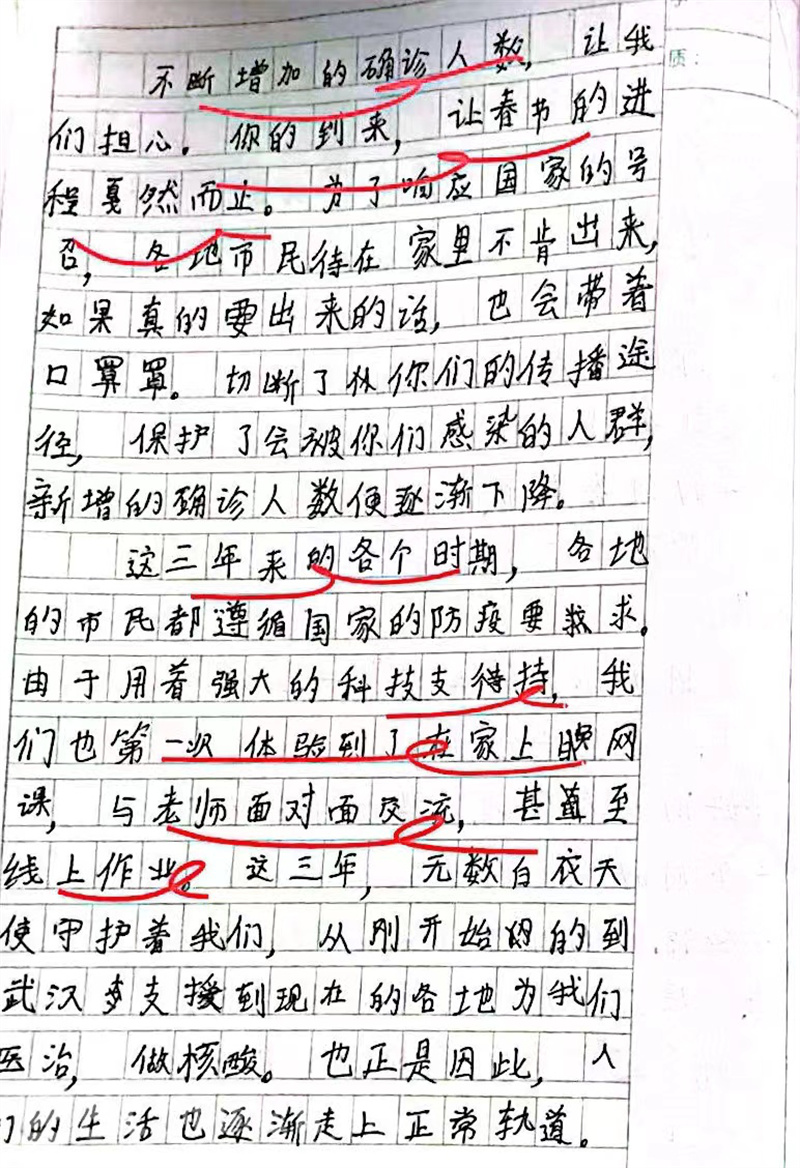 不断增加的确诊人数，让我
们担心。你的到来，让春节的进
程戛然而止。为了响应国家的号
召，各地市民待在家里不肯出来，
如果真的要出来的话，也会带着
口罩罩。切断了从你们的传播途
径，保护了会被你们感染的人群，
新增的确诊人数便逐渐下降。
这三年来的各个时期，各地
的市民都遵循国家的防疫要求。
由于用着强大的科技支待持，我
们也第一次体验到了在家上网
课，与老师面对面交流，甚至
线上作业。这三年，无数白衣天
使守护着我们，从刚开始的到
武汉支援到现在的各地为我们
医治，做核酸。也正是因此，人
们的生活也逐渐走上正常轨道。
质：